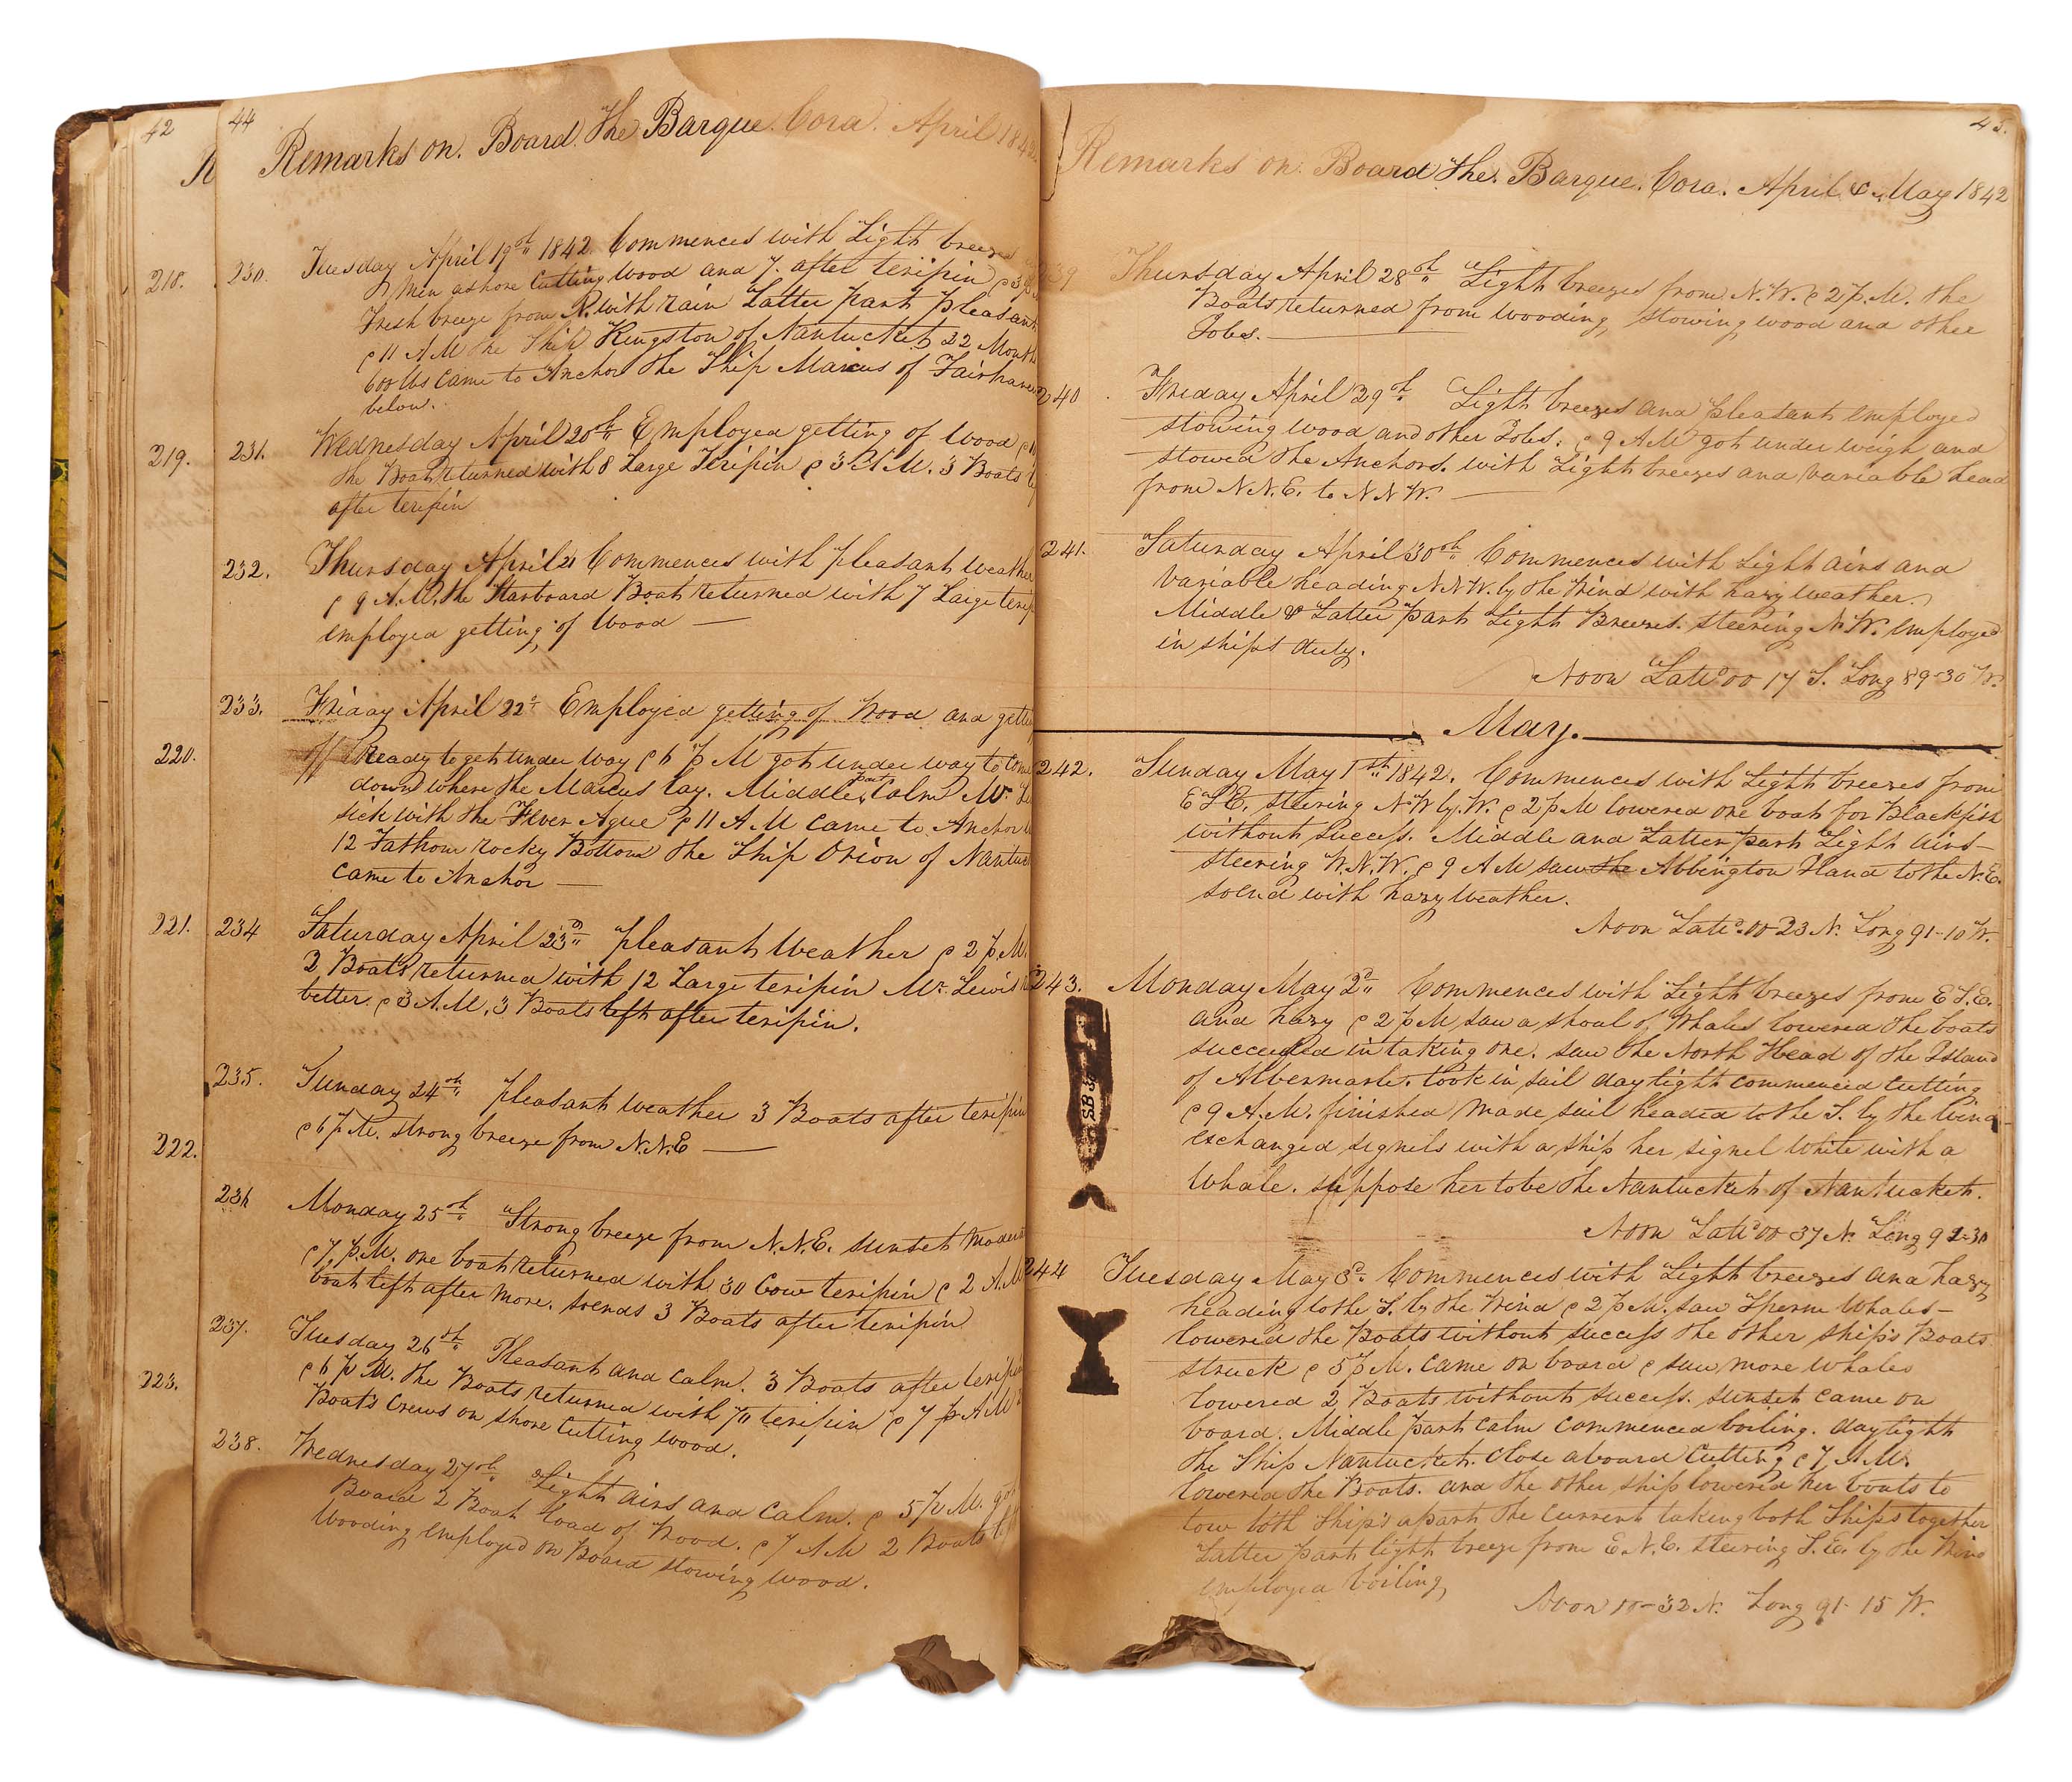 42
R
218.
219.
220.
221.
222.
223.
44
Remarks on. Board. The Barque. Cora. April 1842
230. Tuesday April 19th 1842. Commences with Light breezes
men ashore Cutting wood and 7. after teripin
Fresh breeze from with rain Latter part pleasant
@ 11 A M the Ship Kingston of Nantucket 22 Month
600 bls came to Anchor the Ship Marcus of Fairhaven
below.
231. Wednesday April 20th Employed getting of Wood
the Boat returned with 8 Large Teripin @ 3 A.M. 3 Boats
after teripin
232. Thursday April 21 Commences with pleasant weather
@ 9 A.M. the Starboard Boat returned with 7 Large
employed getting of Wood —
233. Friday April 22d Employed getting of Wood and
Ready to get under way @ 6 P M got under way to
down where the Marcus lay. Middle part Calm Mr.
sick with the Fever Ague @ 11 A M came to Anchor
12 Fathom rocky Bottom the Ship Orion of
came to Anchor —
234 Saturday April 23d pleasant Weather @ 2 P.M.
2 Boats returned with 12 Large teripin Mr. Lewis
better. @ 3 A.M. 3 Boats left after teripin.
235. Sunday 24th pleasant weather 3 Boats after teripin
@ 6 P.M. strong breeze from N.N.E —
236 Monday 25th Strong breeze from N.N.E. sunset
@ 7. P.M. one boat returned with 30 Cow teripin @ 2 A.M
boat left after more. soends 3 Boats after teripin
237. Tuesday 26th Pleasant and calm. 3 Boats after
@ 6 P M. the Boats returned with 70 teripin @ 7 A M 2
Boats Crews on shore Cutting wood.
238. Wednesday 27th Light airs and calm. @ 5 P.M. got
Board 2 Boat load of Wood. @ 7 A M 2 Boats
Wooding employed on Board stowing wood.
45.
Remarks on. Board the. Barque. Cora. April & May 1842
239 Thursday April 28th Light breezes from N.W. @ 2 P.M. the
Boats returned from wooding stowing wood and other
Jobs. —
240 Friday April 29th Light breezes and pleasant employed
stowing wood and other Jobs. @ 9 A M got under weigh and
stowed the Anchors. with Light breezes and variable head
from N.N.E. to N N W. —
241. Saturday April 30th Commences with Light airs and
Variable heading N N W. by the Wind with hazy weather.
Middle & Latter part Light Breezes. steering N.W. employed
in ships duty.
Noon Latd 00 17 S. Long 89-30 W.
May.
242. Sunday May 1th 1842. Commences with Light breezes from
E S E. steering N.W by. W. @ 2 P M lowered one boat for Blackfish
without success. Middle and Latter part Light airs —
steering W.N.W. @ 9 A M saw the Abbington Iland to the N.E.
soend with hazy weather.
Noon Latd 00-23 N. Long 91-10 W.
243. Monday May 2d Commences with Light breezes from E S.E.
and hazy @ 2 P M saw a shoal of Whales lowered the boats
succeeded in taking one. saw the North Head of the Island
of Albermarle. took in sail daylight commenced Cutting
@ 9 A.M. finished made sail headed to the S. by the Wind
exchanged signels with a ship her signel White with a
Whale. suppose her to be the Nantucket of Nantucket.
Noon Latd 00-37 N. Long 92-30
244 Tuesday May 3d. Commences with Light breezes and hazy
heading to the S. by the Wind @ 2 P.M. saw Sperm Whales —
lowered the Boats without success the other ship's Boats
struck @ 5 P M. came on board @ saw more whales
lowered 2 Boats without success. sunset came on
board. Middle part calm commenced boiling. daylight
the Ship Nantucket. close aboard Cutting @ 7 A M.
lowered the Boats. and the other ship lowered her boats to
tow both Ship's apart the Current taking both Ships together
Latter part light breeze from E.N.E. steering S.E. by the Wind
employed boiling
Noon 00-32 N. Long 91-15 W.